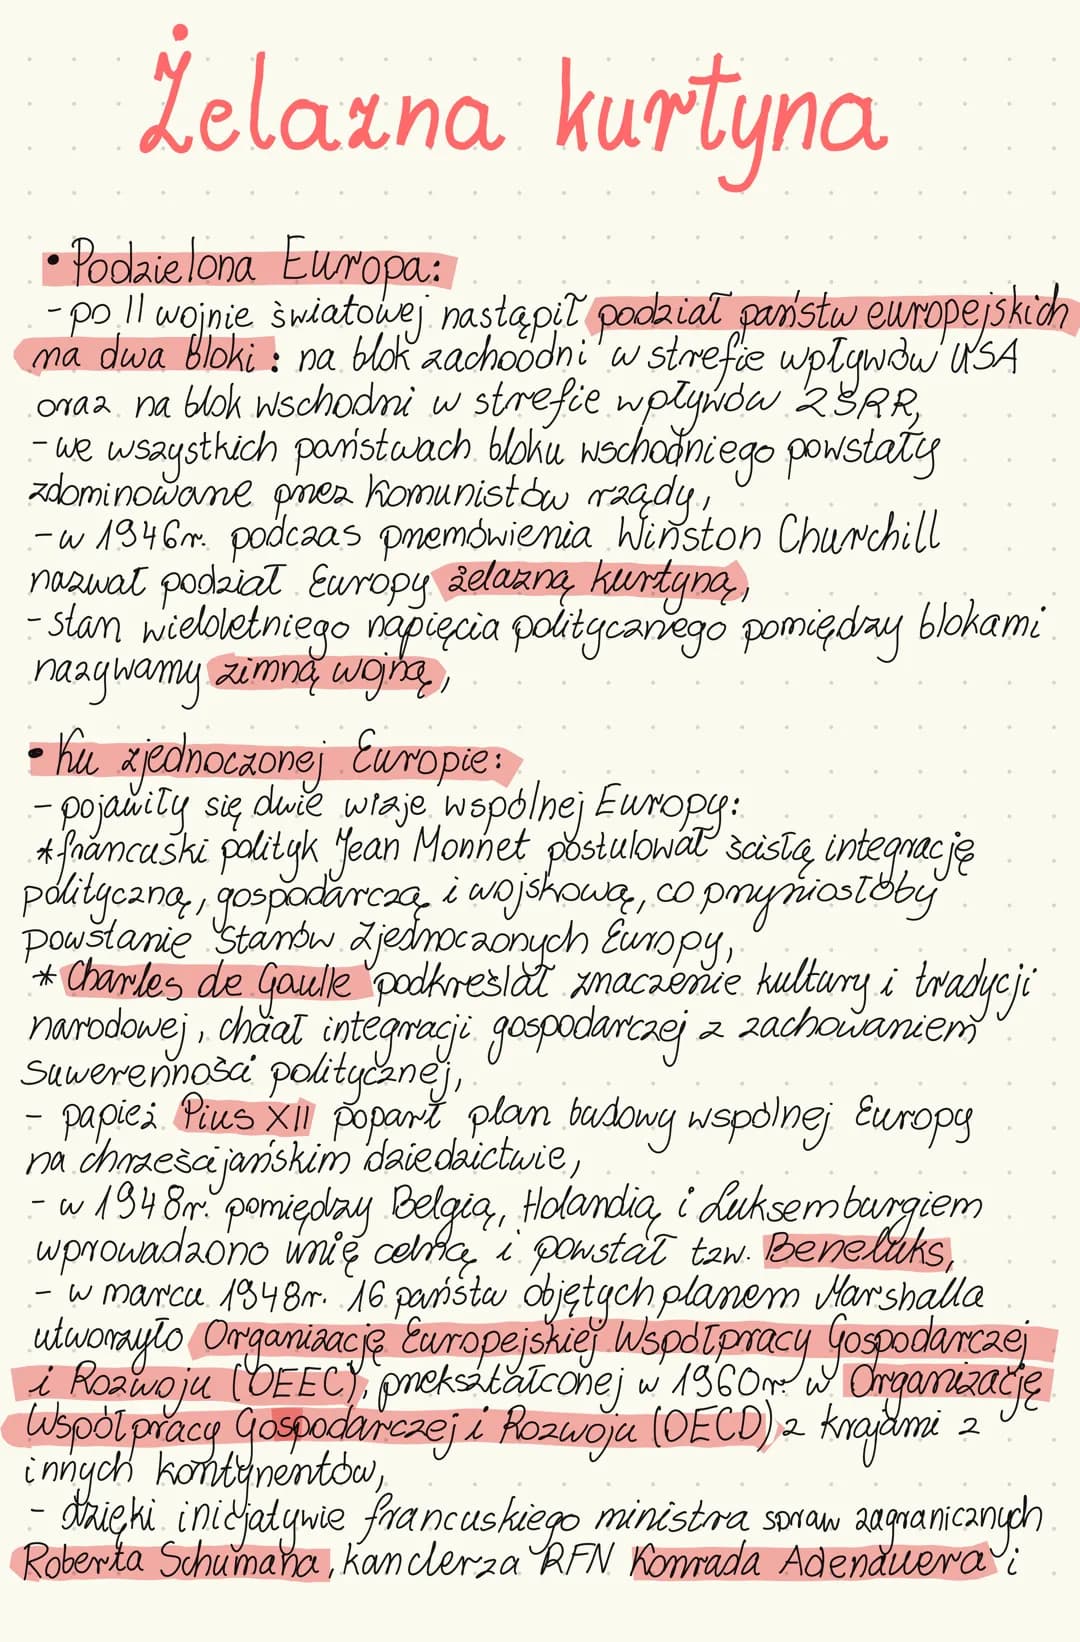 Żelazna kurtyna
• Podzielona Europa:
- po II wojnie światowej nastąpił podział państw europejskich
na dwa bloki: na blok zachoodni w strefie wpływów USA
oraz na blok wschodni w strefie wpływów ZSRR,
- we wszystkich państwach bloku wschodniego powstały
zdominowane przez komunistów rządy,
- w 1946r. podczas przemówienia Winston Churchill
nazwał podział Europy żelazną kurtyną,
- stan wieloletniego napięcia politycznego pomiędzy blokami
nazywamy zimną wojną,
• Ku zjednoczonej Europie:
- pojawiły się dwie wizje wspólnej Europy:
* francuski polityk Jean Monnet postulował ścisłą integrację
polityczną, gospodarczą i wojskową, co przyniosłoby
powstanie Stanów Zjednoczonych Europy,
* Charles de Gaulle podkreślał znaczenie kultury i tradycji
narodowej, chciał integracji gospodarczej z zachowaniem
suwerenności politycznej,
- papież Pius XII poparł plan budowy wspólnej Europy
na chrześcijańskim dziedzictwie,
- w 1948r. pomiędzy Belgią, Holandią i Luksemburgiem
wprowadzono unię celną i powstał tzw. Beneluks,
- w marcu 1948r. 16 państw objętych planem Marshalla
utworzyło Organizację Europejskiej Współpracy Gospodarczej
i Rozwoju (OEEC), przekształconej w 1960r. w Organizację
Współpracy Gospodarczej i Rozwoju (OECD) z krajami z
innych kontynentów,
- dzięki inicjatywie francuskiego ministra spraw zagranicznych
Roberta Schumana, kanclerza RFN Konrada Adenauera i